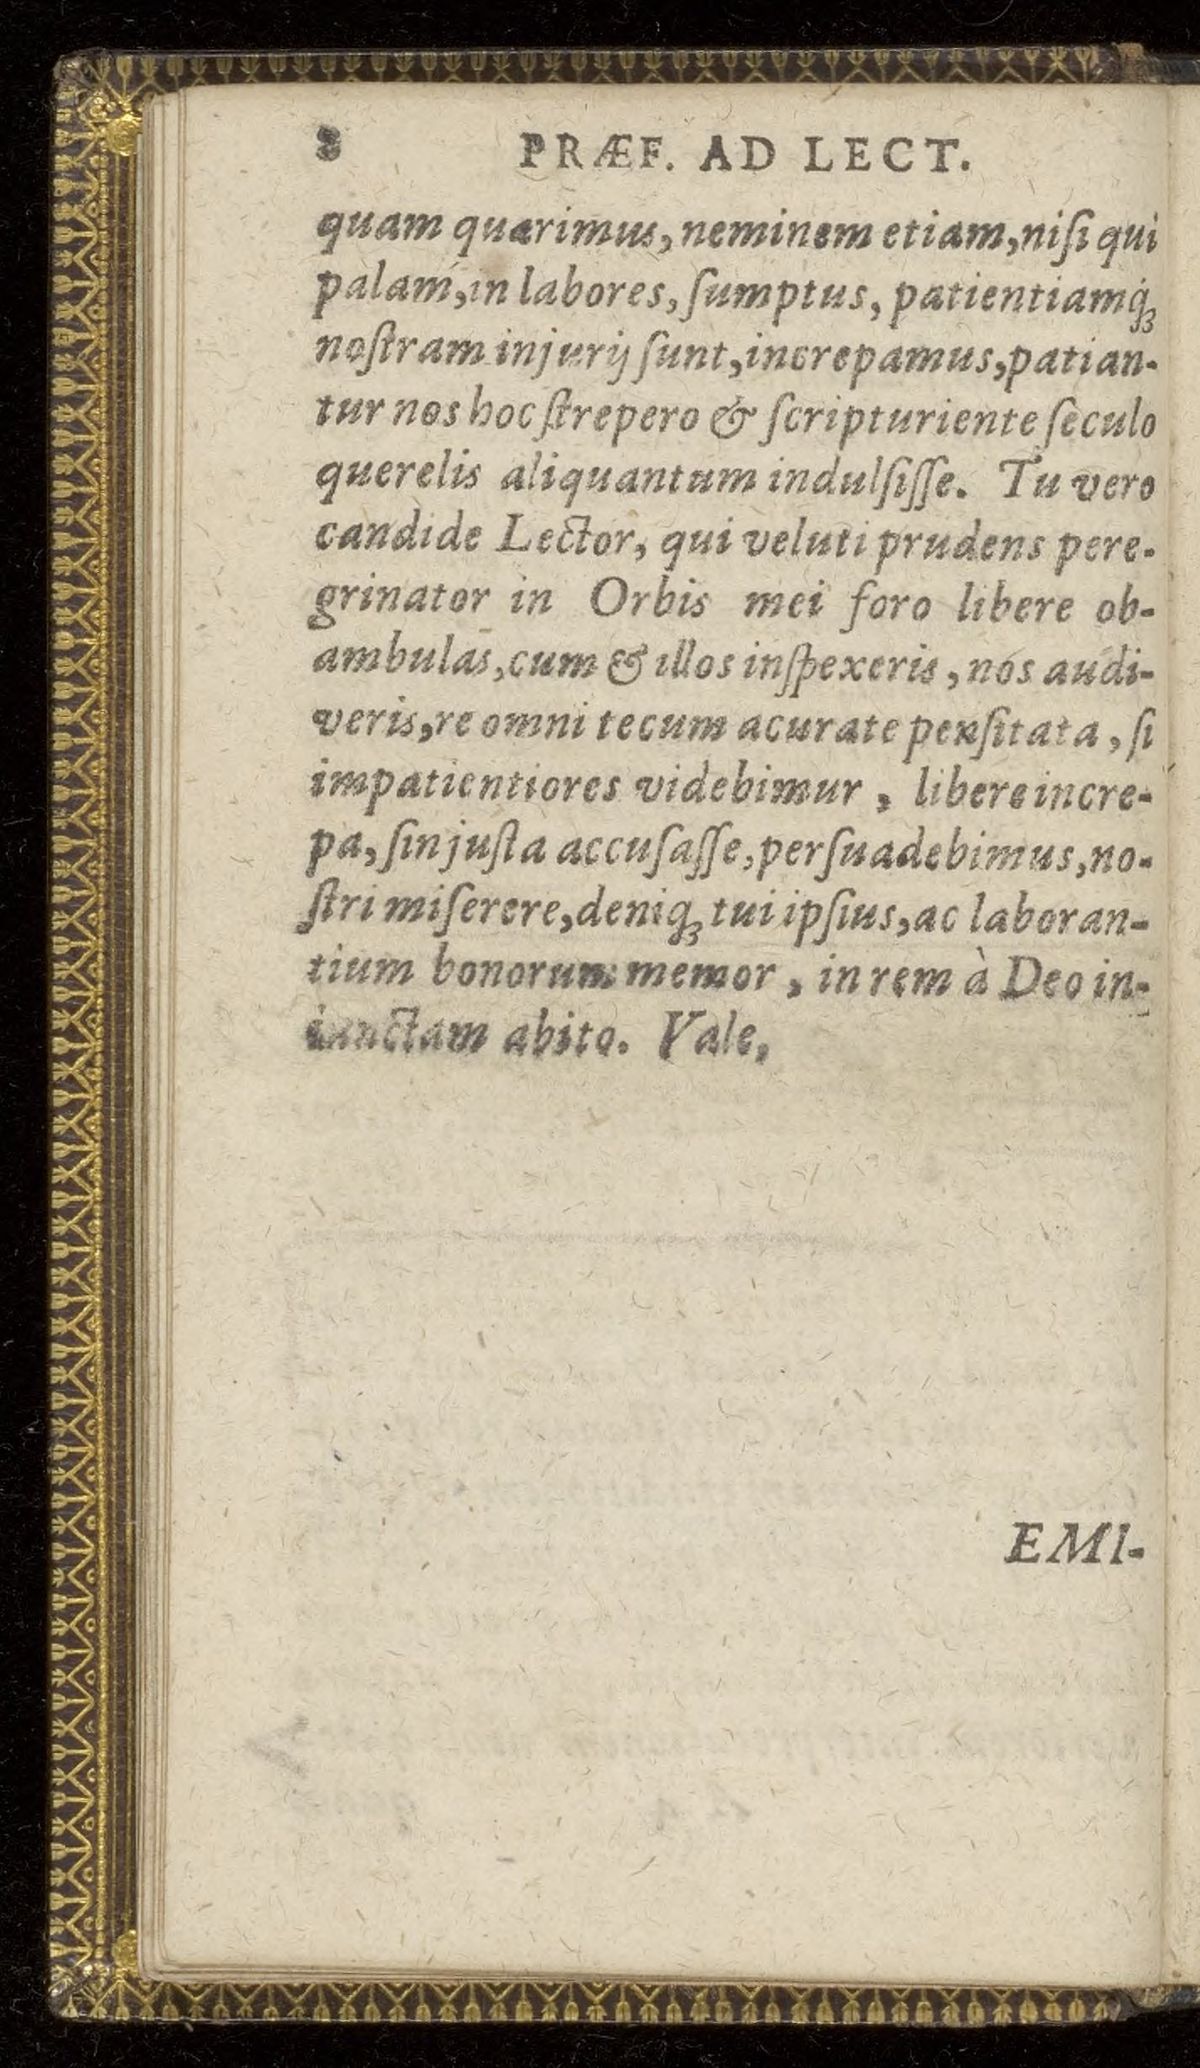 8 PRÆF. AD LECT.
quam quærimus, neminem etiam, niſi qui
palam, in labores, ſumptus, patientiamq́ꝫ
noſtram injurij ſunt, increpamus, patian-
tur nos hoc ſtrepero & ſcripturiente ſeculo
querelis aliquantum indulſiſſe. Tu vero
candide Lector, qui veluti prudens pere-
grinator in Orbis mei foro libere ob-
ambulas, cum & illos inſpexeris, nos audi-
veris, re omni tecum acurate penſitata, ſi
impatientiores videbimur, libere incre-
pa, ſin juſta accuſaſſe, perſuadebimus, no-
ſtri miſerere, deniqꝫ tui ipſius, ac laboran-
tium bonorum memor, in rem à Deo in-
junctam abito. Vale,
EMI-